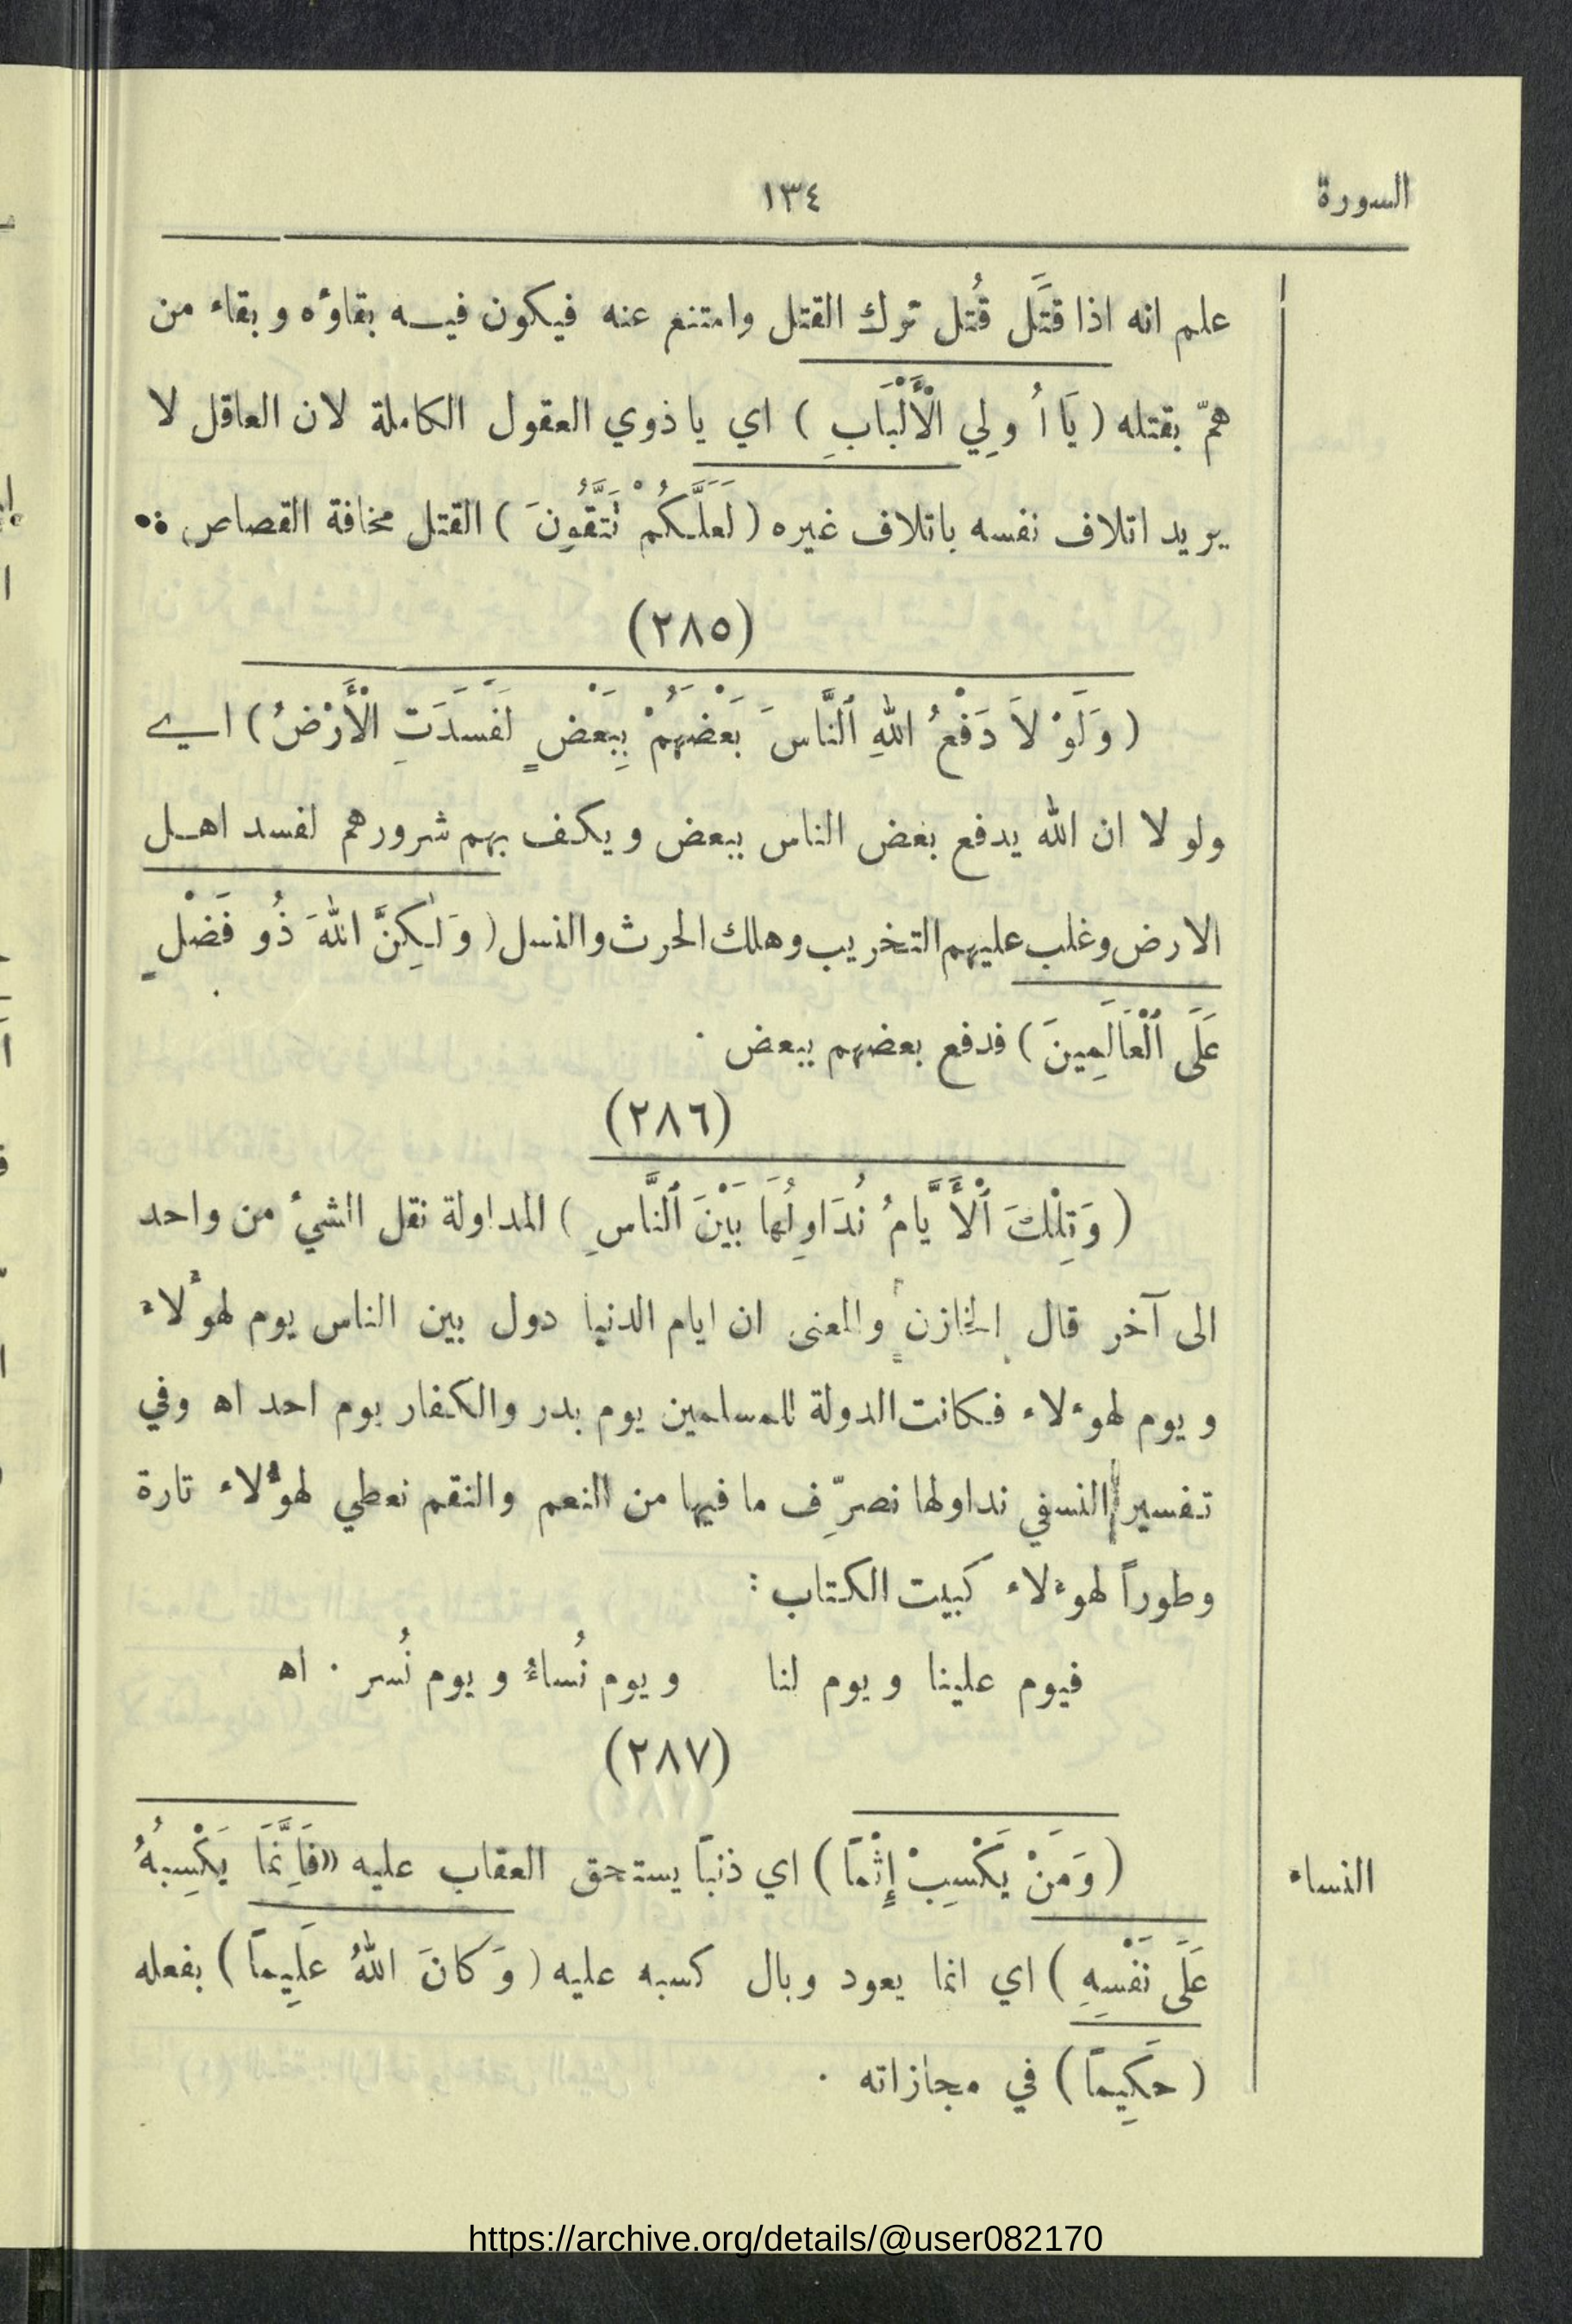 السورة
١٣٤
علم انه اذا قَتَل قُتل ترك القتل وامتنع عنه فيكون فيه بقاؤه وبقاء من
همّ بقتله ( يَا أُولِي الْأَلْبَابِ ) اي يا ذوي العقول الكاملة لان العاقل لا
يريد اتلاف نفسه باتلاف غيره ( لَعَلَّكُمْ تَتَّقُونَ ) القتل مخافة القصاص
(٢٨٥)
( وَلَوْ لَا دَفْعُ اللهِ ٱلنَّاسَ بَعْضَهُمْ بِبَعْضٍ لَفَسَدَتِ الْأَرْضُ ) اي
ولو لا ان الله يدفع بعض الناس ببعض ويكف بهم شرورهم لفسد اهل
الارض وغلب عليهم التخريب وهلك الحرث والنسل ( وَلٰكِنَّ اللهَ ذُو فَضْلٍ
عَلَى ٱلْعَالَمِينَ ) فدفع بعضهم ببعض ٠
(٢٨٦)
( وَتِلْكَ ٱلْأَيَّامُ نُدَاوِلُهَا بَيْنَ ٱلنَّاسِ ) المداولة نقل الشيء من واحد
الى آخر قال الخازن والمعنى ان ايام الدنيا دول بين الناس يوم لهؤلاء
ويوم لهؤلاء فكانت الدولة للمسلمين يوم بدر والكفار يوم احد اه وفي
تفسير النسفي نداولها نصرِّف ما فيها من النعم والنقم نعطي لهؤلاء تارة
وطوراً لهؤلاء كبيت الكتاب :
فيوم علينا ويوم لنا ويوم نُساءُ ويوم نُسر ٠ اه
(٢٨٧)
( وَمَنْ يَكْسِبْ إِثْمًا ) اي ذنبًا يستحق العقاب عليه «فَاِنَّمَا يَكْسِبُهُ
النساء
عَلَى نَفْسِهِ ) اي انما يعود وبال كسبه عليه ( وَكَانَ اللهُ عَلِيمًا ) بفعله
( حَكِيمًا ) في مجازاته ٠
https://archive.org/details/@user082170